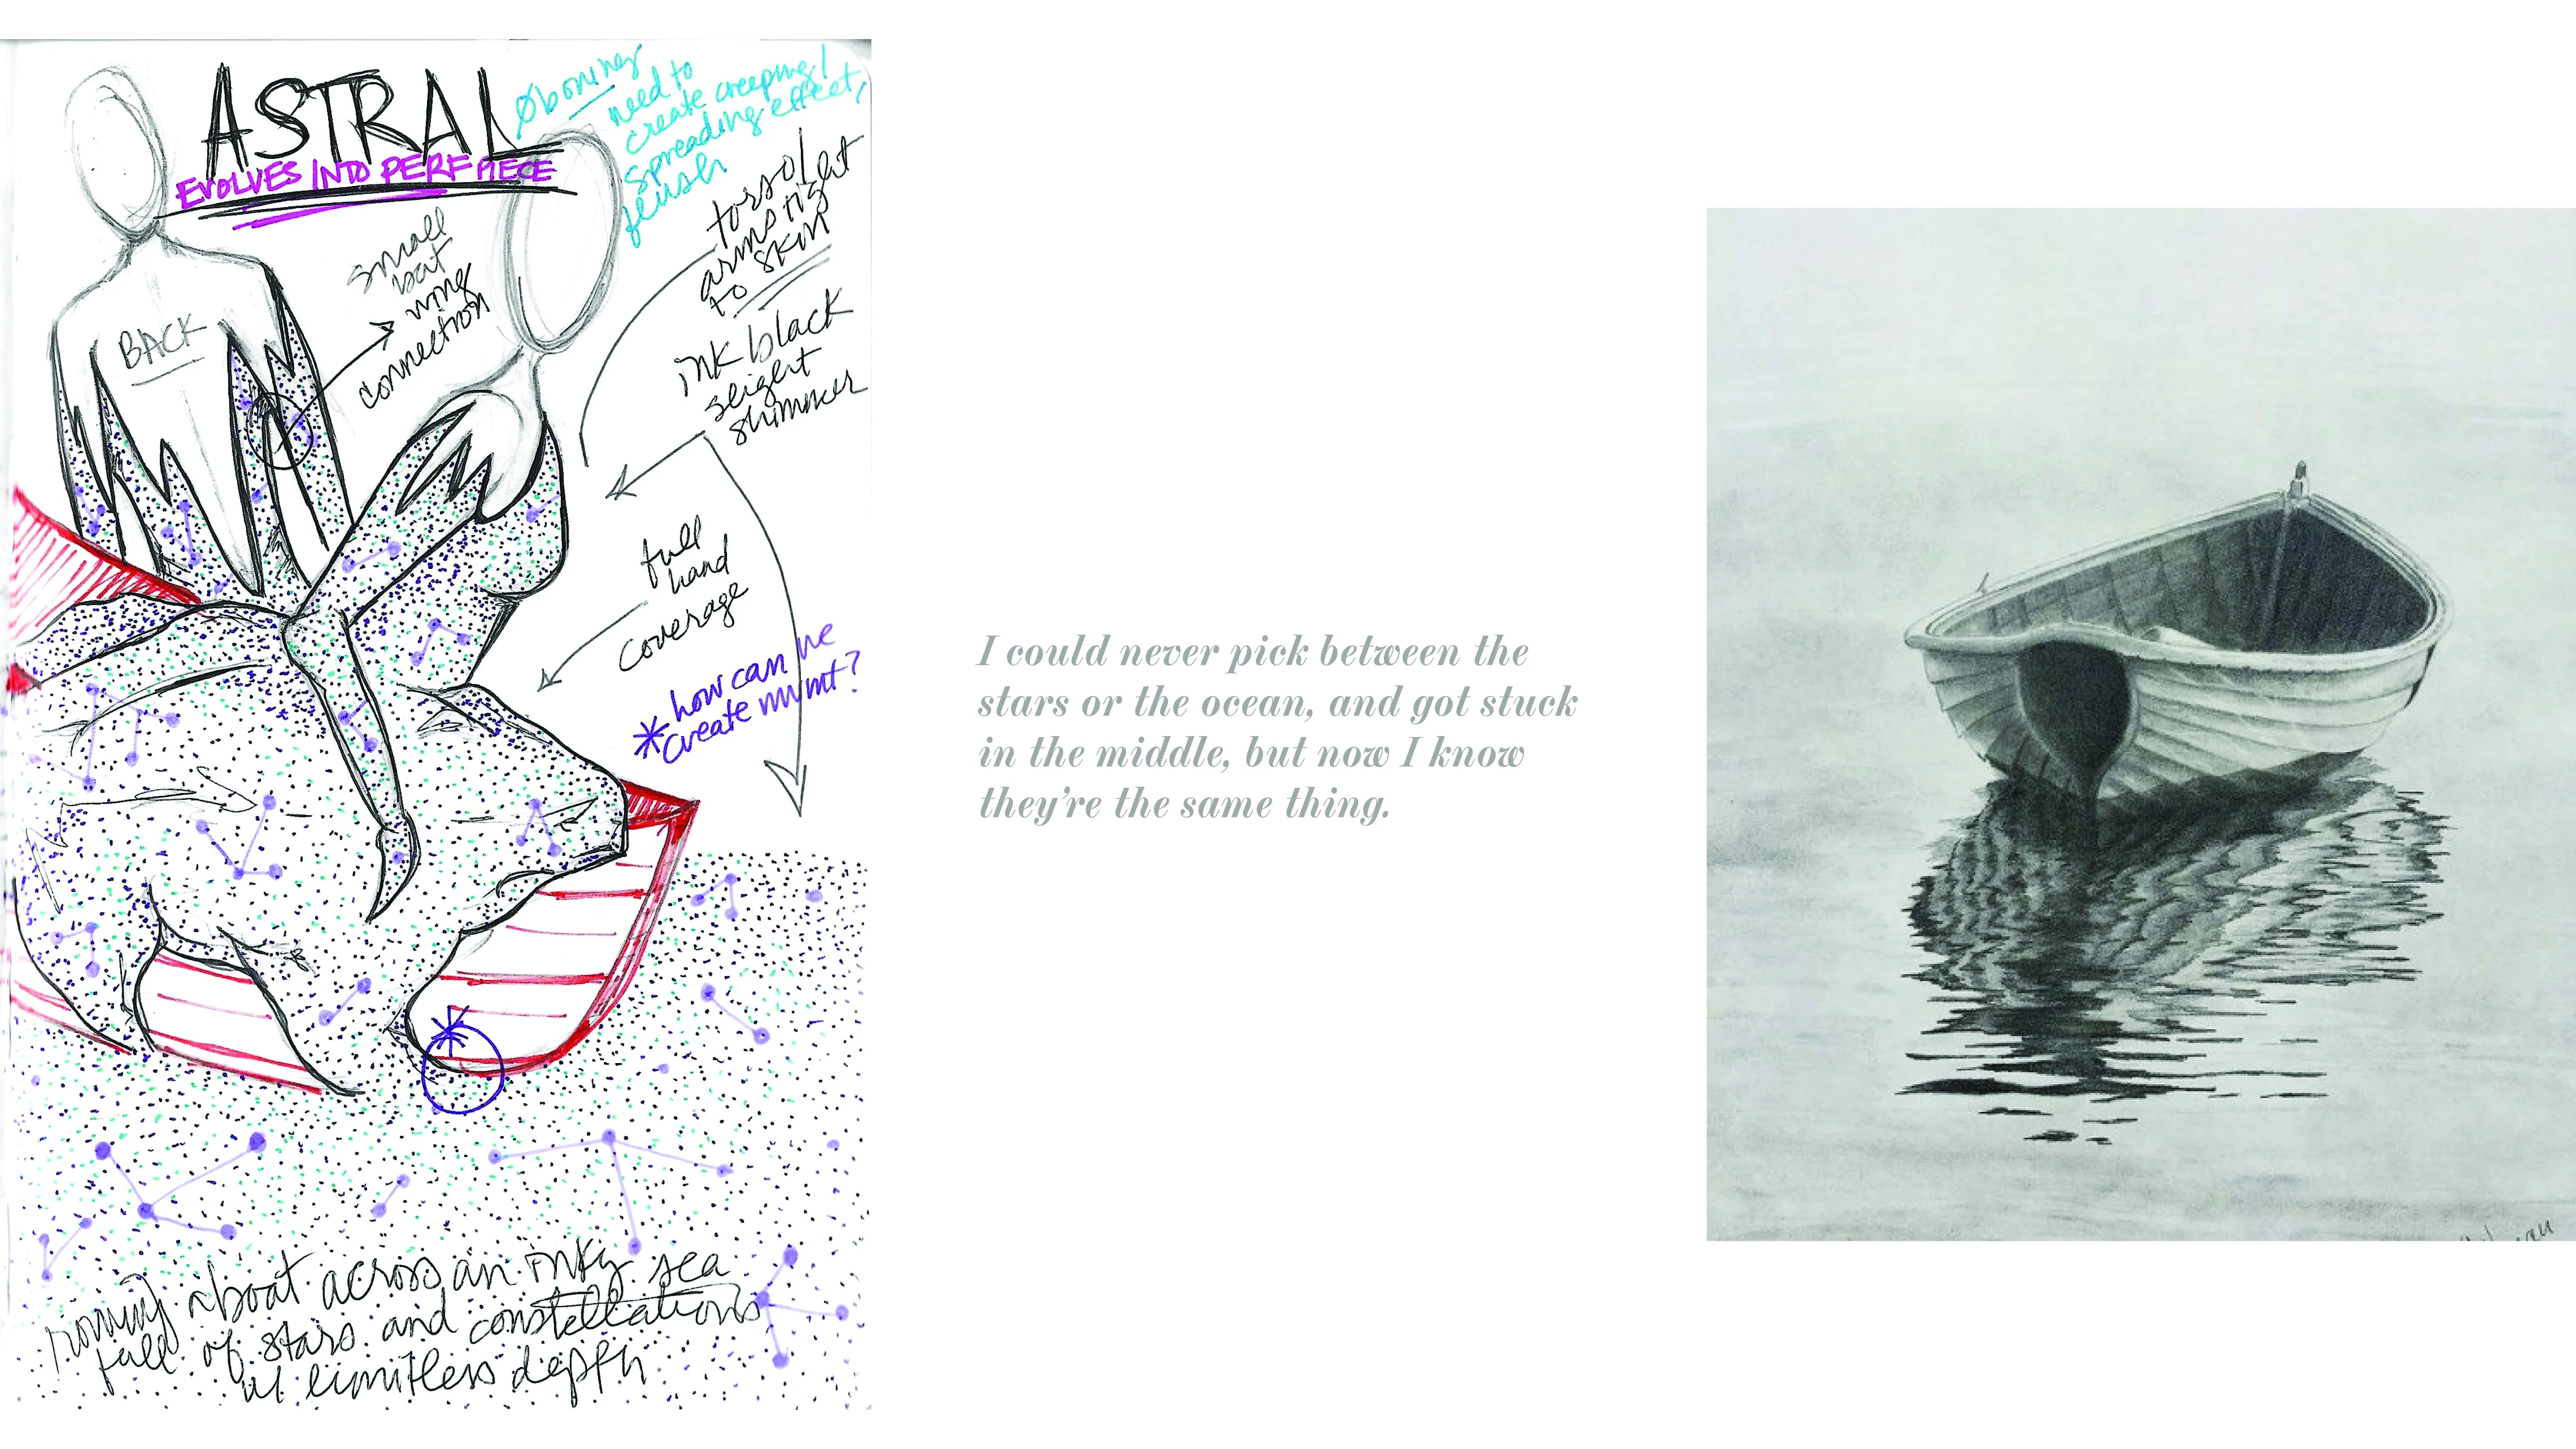 ASTRAL
EVOLVES INTO PERF PIECE
Ø boning
need to
create creeping/
spreading effect,
torso/
arms tight
to skin
small
bat
wing
connection
BACK
ink black
sleight
shimmer
full
hand
coverage
* how can we
create mvmt?
I could never pick between the
stars or the ocean, and got stuck
in the middle, but now I know
they’re the same thing.
*
rowing a boat across an inky sea
full of stars and constellations
w/ limitless depth